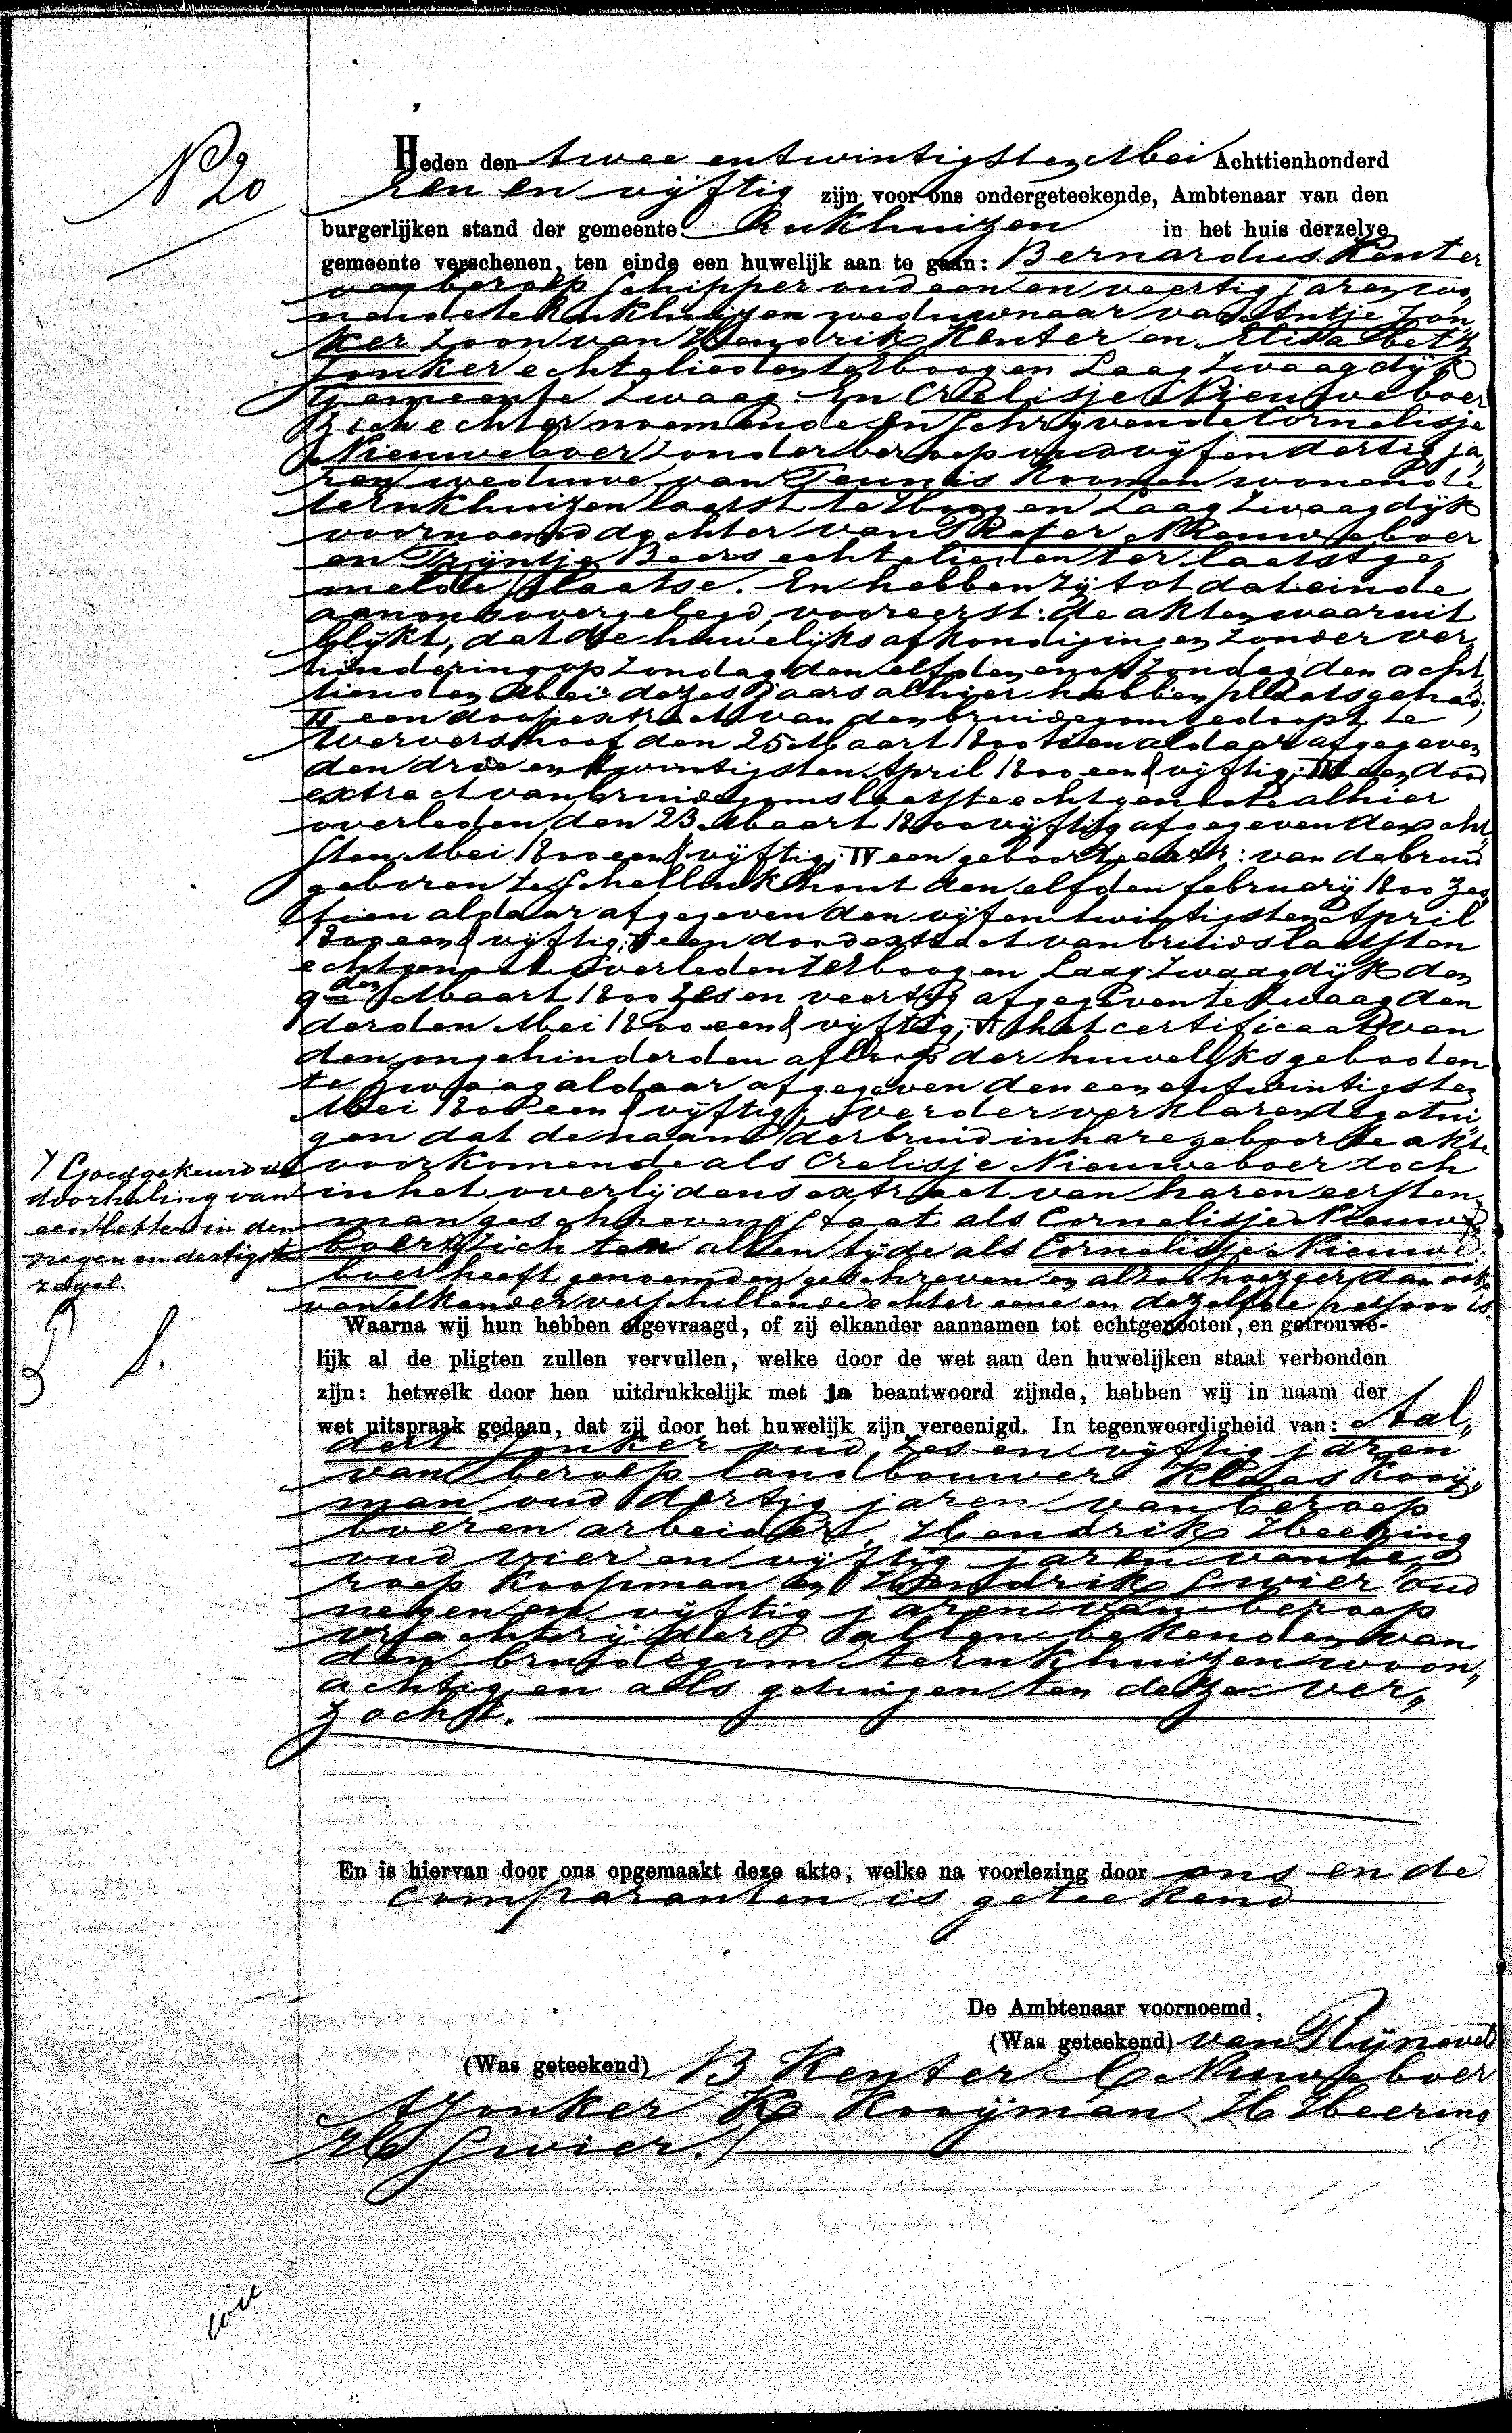 N 20
Heden den twee en twintigsten Mei Achttienhonderd
een en vijftig zijn voor ons ondergeteekende, Ambtenaar van den
burgerlijken stand der gemeente Enkhuizen in het huis derzelve
gemeente verschenen, ten einde een huwelijk aan te gaan: Bernardus Kenter
van beroep schipper oud een en veertig jaren wo„
nende te Enkhuizen weduwnaar van Antje Jon„
ker zoon van Hendrik Kenter en Elisabeth
Jonker echtelieden te Hoog en Laag Zwaagdijk
Gemeente Zwaag. En Crelisje Nieuweboer
zich echter noemende en schryvende Cornelisje
Nieuweboer zonder beroep oud vijf en dertig ja„
ren weduwe van Teunis Koomen wonende
te Enkhuizen laatst te Hoog en Laag Zwaagdijk
voornoemd dochter van Pieter Nieuweboer
en Trijntje Beers echtelieden ter laatstge„
melde plaatse. En hebben zij tot dat einde
aan ons overgelegd, vooreerst: de akten waaruit
blijkt, dat de huwelijks afkondigingen zonder ver„
hindering op zondag den elfden en op zondag den acht„
tienden Mei dezes jaars alhier hebben plaats gehad;
II een doopextract van den bruidegom gedoopt te
Wervershoof den 25 Maart 1800 tien aldaar afgegeven
den drie en twintigsten April 1800 een & vijftig; III een dood
extract van bruidegoms laatste echtgenoote alhier
overleden den 23 Maart 1800 vijftig afgegeven den acht„
sten Mei 1800 een & vijftig; IV een geboorte extr: van de bruid
geboren te Schellinkhout den elfden february 1800 zes
tien aldaar afgegeven den vijf en twintigsten April
1800 een & vijftig; V een doodextract van bruids laatsten
echtgenoot overleden te Hoog en Laag Zwaagdijk den
9den Maart 1800 zes en veertig afgegeven te Zwaag den
derden Mei 1800 een & vijftig; VI het certificaat van
den ongehinderden afloop der huwelijksgeboden
te Zwaag aldaar afgegeven den een en twintigsten
Mei 1800 een & vijftig; verder verklaren de getui„
gen dat de naam der bruid in hare geboorte akte
voorkomende als Crelisje Nieuweboer doch
in het overlijdens extract van haren eersten
man geschreven staat als Cornelisje Nieuwe
boer zich ten allen tijde als Cornelisje Nieuwe
boer heeft genoemd en geschreven en alzoo hoezeer dan ook
van elkander verschillende echter eene en dezelfde persoon is.
Y Goedgekeurd de
doorhaling van
een letter in den
negen en dertigste
regel.
Waarna wij hun hebben afgevraagd, of zij elkander aannamen tot echtgenooten, en getrouwe-
lijk al de pligten zullen vervullen, welke door de wet aan den huwelijken staat verbonden
zijn: hetwelk door hen uitdrukkelijk met ja beantwoord zijnde, hebben wij in naam der
wet uitspraak gedaan, dat zij door het huwelijk zijn vereenigd. In tegenwoordigheid van: Aal„
dert Jonker oud zes en vijftig jaren
van beroep landbouwer Klaas Kooij„
man oud dertig jaren van beroep
boeren arbeider, Hendrik Heering
oud vier en vijftig jaren van be„
roep koopman en Hendrik Swier oud
negen en vijftig jaren van beroep
vrachtrijder allen bekenden van
den bruidegom te Enkhuizen woon„
achtig en als getuigen ten deze ver„
zocht.
En is hiervan door ons opgemaakt deze akte, welke na voorlezing door ons en de
comparanten is geteekend
De Ambtenaar voornoemd.
(Was geteekend) van Rijnevel
(Was geteekend) B Kenter C Nieuweboer
A Jonker K Kooijman H Heering
H Swier.